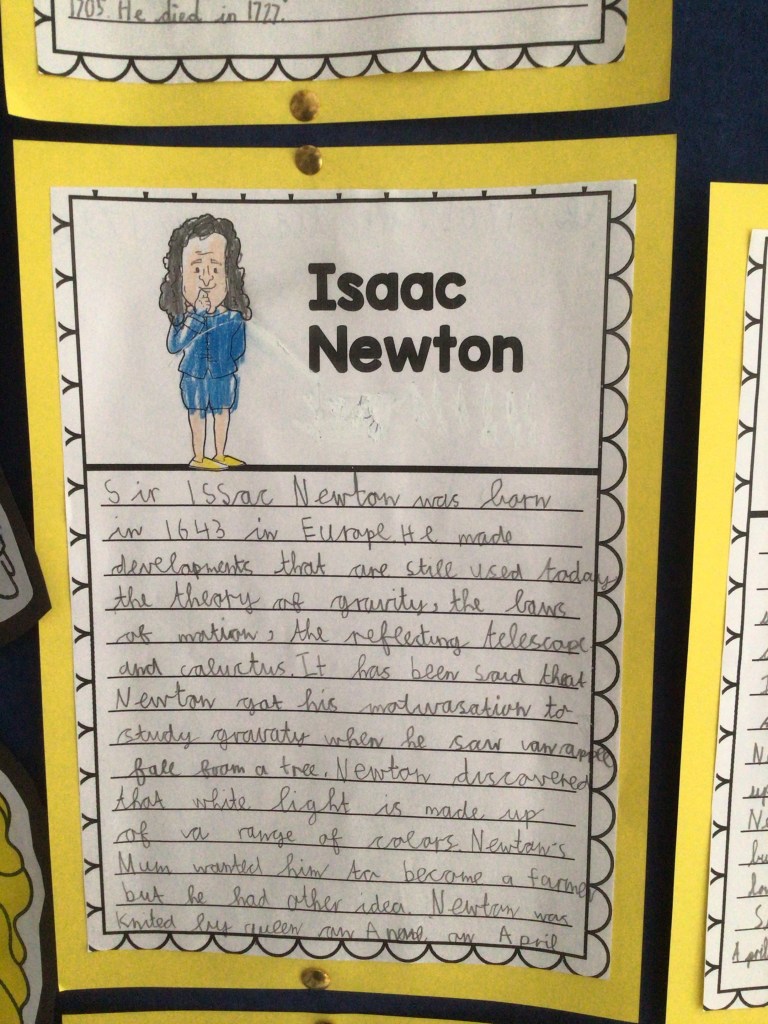 1705. He died in 1727.
Isaac
Newton
Sir ISSac Newton was born
in 1643 in Europe. He made
developments that are still used today
the theory of gravity, the laws
of motion, the reflecting telescope
and caluctus. It has been said that
Newton got his motivasation to
study gravaty when he saw an apple
fall from a tree. Newton discovered
that white light is made up
of a range of colors. Newton's
Mum wanted him to become a farmer
but he had other idea. Newton was
Knited by queen an Anne, on April
April